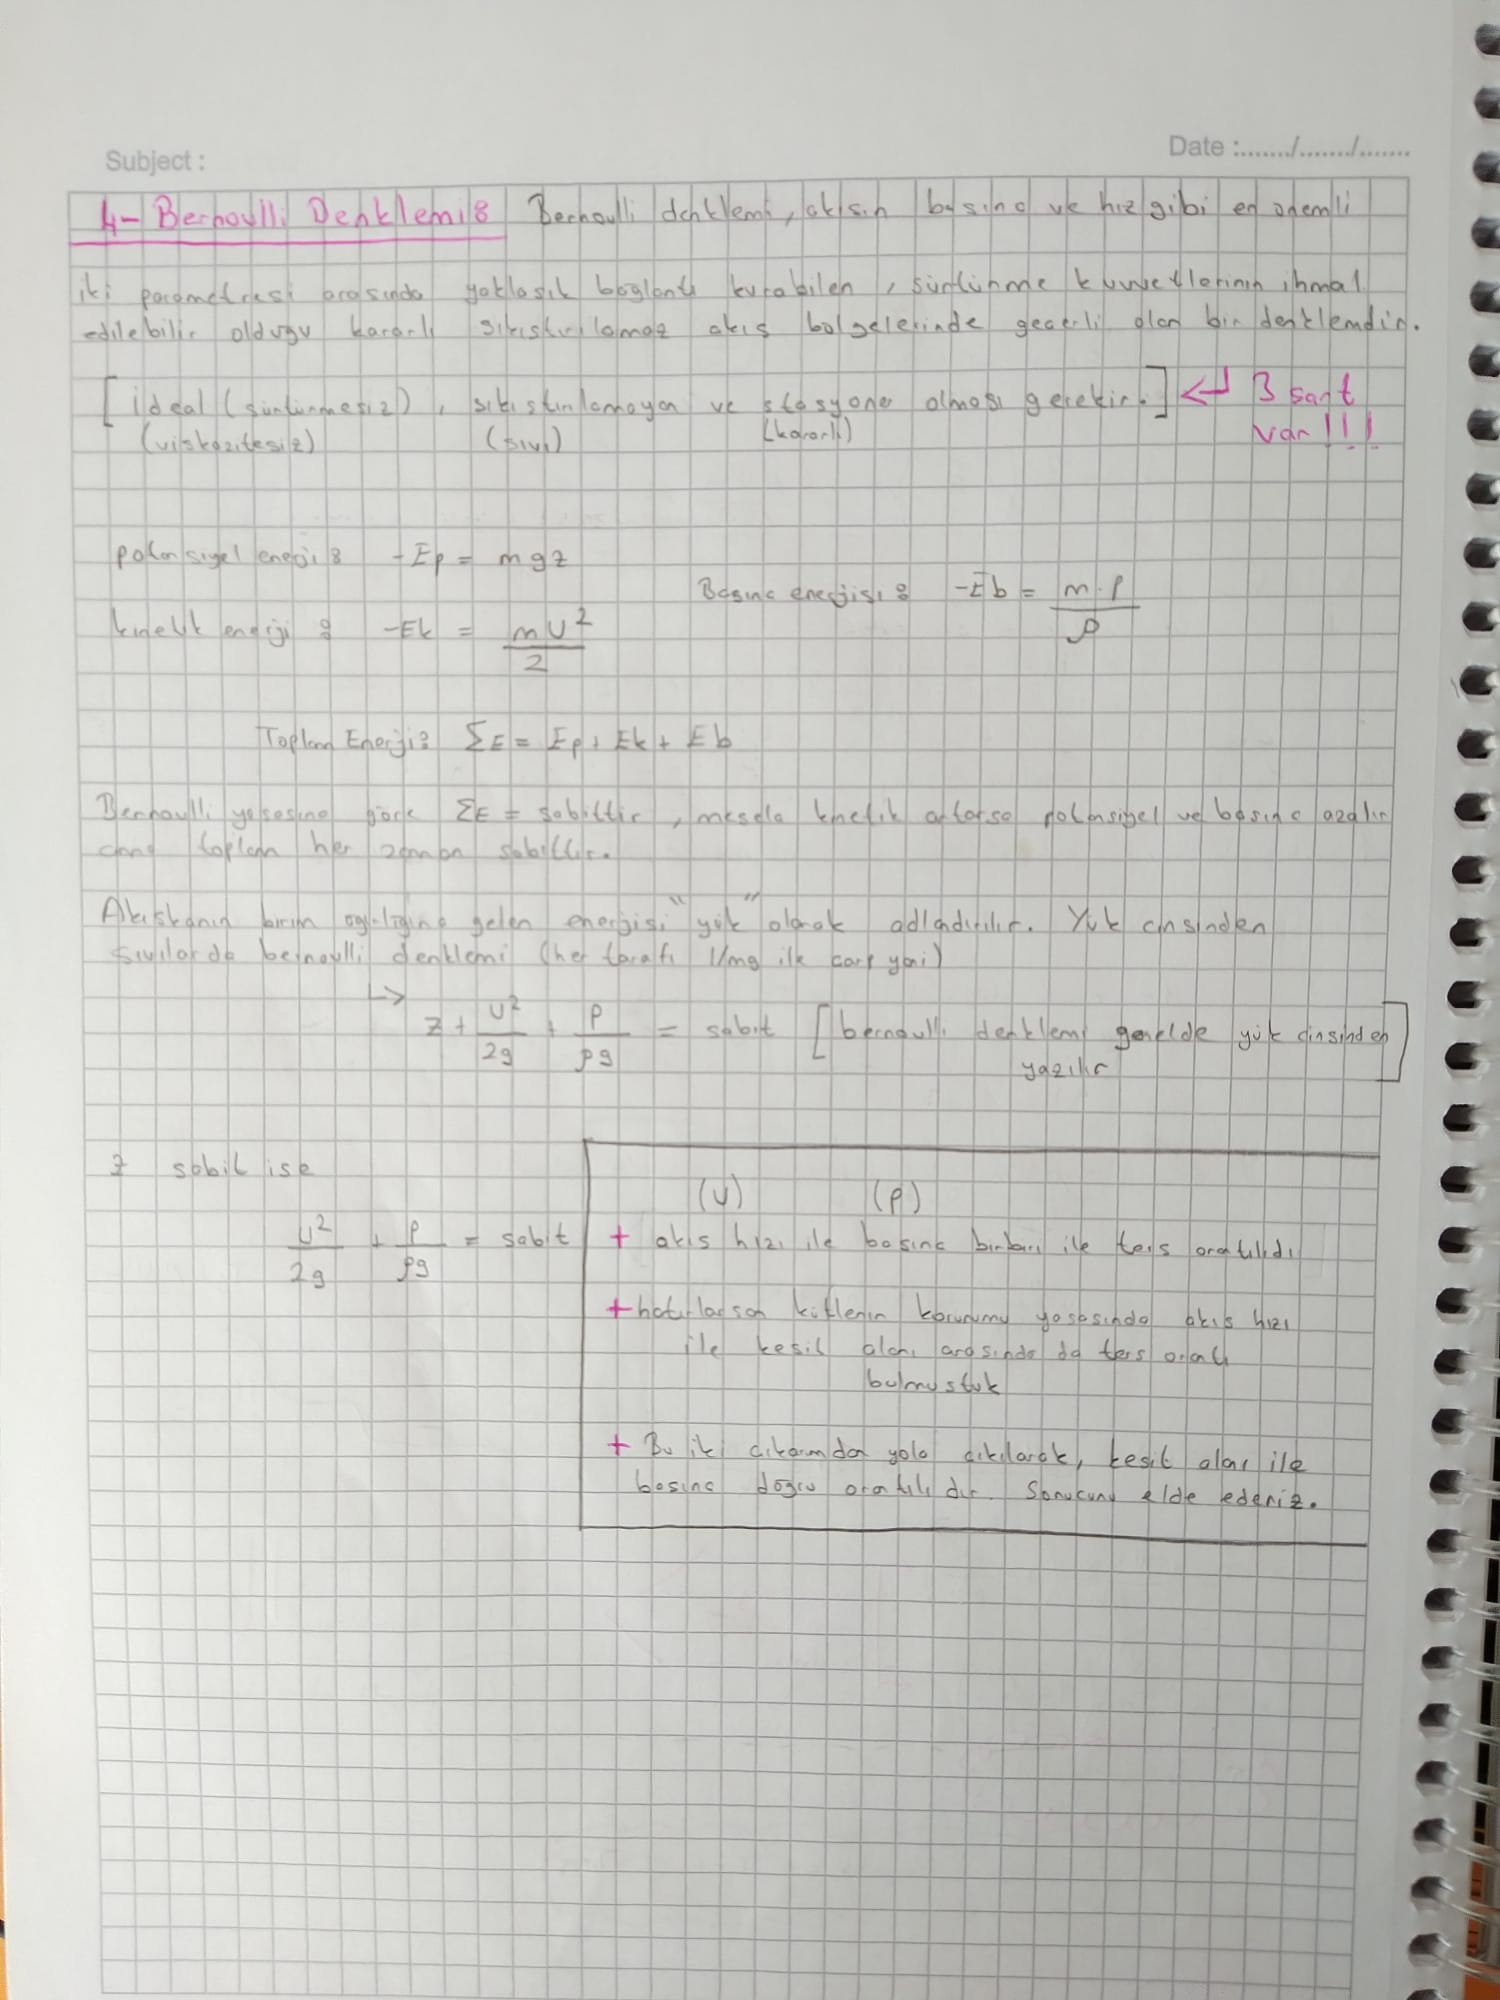 Subject :
Date :......./......./.......
4- Bernoulli Denklemi : Bernoulli denklemi, akısın basınc ve hız gibi en önemli
iki parametresi arasında yaklasık baglantı kurabilen, sürtünme kuvvetlerinin ihmal
edilebilir oldugu kararlı sıkıstırılamaz akış bolgelerinde gecerli olan bir denklemdir.
[ideal (sürtünmesiz), sıkıstırılamayan ve stasyoner olması gerekir.] ↵ 3 sart
(viskozitesiz) (sıvı) (kararlı) var !!!
potansiyel enerji : -Ep = mgz
Basınc enerjisi : -Eb = m.P / ρ
kinetik enerji : -Ek = mU² / 2
Toplam Enerji : ΣE = Ep + Ek + Eb
Bernoulli yasasına göre ΣE = sabittir, mesela kinetik artarsa potansiyel ve basınc azalır
ama toplam her zaman sabittir.
Akıskanın birim agırlıgına gelen enerjisi "yük" olarak adlandırılır. Yük cinsinden
Sıvılarda bernoulli denklemi (her tarafı 1/mg ile carp yani)
↳ z + U²/2g + P/ρg = sabit [bernoulli denklemi genelde yük cinsinden
yazılır]
z sabit ise
(U) (P)
U²/2g + P/ρg = sabit
+ akıs hızı ile basınc birbiri ile ters orantılıdı
+ hatırlarsan kütlenin korunumu yasasında akıs hızı
ile kesit alanı arasında da ters orantı
bulmustuk
+ Bu iki cıkarımdan yola cıkılarak, kesit alanı ile
basınc dogru orantılıdır. Sonucunu elde ederiz.